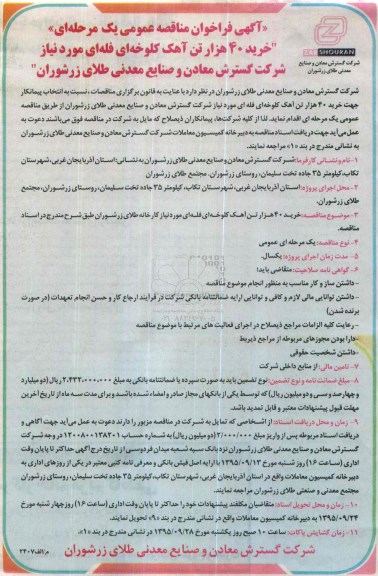 «آگهی فراخوان مناقصه عمومی یک مرحله‌ای»
"خرید ۴۰ هزار تن آهک کلوخه‌ای فله‌ای مورد نیاز
شرکت گسترش معادن و صنایع معدنی طلای زرشوران"
ZARSHOURAN
شرکت گسترش معادن و صنایع
معدنی طلای زرشوران
شرکت گسترش معادن و صنایع معدنی طلای زرشوران در نظر دارد با عنایت به قانون برگزاری مناقصات، نسبت به انتخاب پیمانکار
جهت خرید ۴۰ هزار تن آهک کلوخه‌ای فله ای مورد نیاز شرکت گسترش معادن و صنایع معدنی طلای زرشوران از طریق مناقصه
عمومی یک مرحله ای اقدام نماید. لذا از کلیه شرکت‌ها، پیمانکاران ذیصلاح که مایل به شرکت در مناقصه فوق می‌باشند دعوت به
عمل می‌آید جهت دریافت اسناد مناقصه به دبیرخانه کمیسیون معاملات شرکت گسترش معادن و صنایع معدنی طلای زرشوران
به نشانی مندرج در بند «۱» مراجعه نمایند.
۱- نام و نشانی کارفرما: شرکت گسترش معادن و صنایع معدنی طلای زرشوران به نشانی: استان آذربایجان غربی، شهرستان
تکاب، کیلومتر ۳۵ جاده تخت سلیمان، روستای زرشوران، مجتمع طلای زرشوران
۲- محل اجرای پروژه: استان آذربایجان غربی، شهرستان تکاب، کیلومتر ۳۵ جاده تخت سلیمان، روستای زرشوران، مجتمع
طلای زرشوران.
۳- موضوع مناقصه: خرید ۴۰ هزار تن آهک کلوخه‌ای فله‌ای مورد نیاز کارخانه طلای زرشوران طبق شرح مندرج در اسناد
مناقصه.
۴- نوع مناقصه: یک مرحله ای عمومی
۵- مدت زمان اجرای پروژه: یکسال.
۶- گواهی نامه صلاحیت: متقاضی باید:
-داشتن ساز و کار مناسب به منظور انجام موضوع مناقصه
-داشتن توانایی مالی لازم و کافی و توانایی ارایه ضمانتنامه بانکی شرکت در فرآیند ارجاع کار و حسن انجام تعهدات (در صورت
برنده شدن)
-رعایت کلیه الزامات مراجع ذیصلاح در اجرای فعالیت های مرتبط با موضوع مناقصه
-دارا بودن مجوزهای مربوطه از مراجع ذیربط
-داشتن شخصیت حقوقی
۷- تامین مالی: از منابع داخلی شرکت
۸- مبلغ ضمانت نامه و نوع تضمین: نوع تضمین باید به صورت سپرده یا ضمانتنامه بانکی به مبلغ ۲,۴۳۲,۰۰۰,۰۰۰ ریال (دو میلیارد
و چهارصد و سی و دو میلیون ریال) که توسط یکی از بانکهای مجاز صادر و امضاء شده باشد و برای مدت سه ماه از تاریخ آخرین
مهلت قبول پیشنهادات معتبر و قابل تمدید باشد.
۹- زمان و محل دریافت اسناد: از اشخاصی که تمایل به شرکت در مناقصه مزبور را دارند دعوت به عمل می‌آید جهت آگاهی و
دریافت اسناد مربوطه پس از واریز مبلغ ۲/۰۰۰/۰۰۰ (دو میلیون ریال) به شماره حساب در وجه شرکت
گسترش معادن و صنایع معدنی طلای زرشوران نزد بانک سپه شعبه میدان فردوسی از تاریخ درج آگهی حداکثر تا پایان وقت
اداری (ساعت ۱۶) روز شنبه مورخ ۱۳۹۵/۰۹/۱۳ با ارایه اصل فیش بانکی و معرفی نامه کتبی معتبر در یکی از روزهای اداری به
دبیرخانه کمیسیون معاملات واقع در استان آذربایجان غربی، شهرستان تکاب، کیلومتر ۳۵ جاده تخت سلیمان، روستای زرشوران
مجتمع معدنی و صنعتی طلای زرشوران مراجعه نمایند.
۱۰- زمان و محل تحویل اسناد: متقاضیان مکلفند پیشنهادات خود را حداکثر تا پایان وقت اداری (ساعت ۱۶) روز چهار شنبه مورخ
۱۳۹۵/۰۹/۲۴ به دبیرخانه کمیسیون معاملات واقع در نشانی مندرج در بند «۹» تحویل نمایند.
۱۱- زمان گشایش پاکات: ساعت ۱۰ صبح روز یکشنبه مورخ ۱۳۹۵/۰۹/۲۸ در نشانی مندرج در بند «۱».
شرکت گسترش معادن و صنایع معدنی طلای زرشوران
م/الف ۲۴۰۷